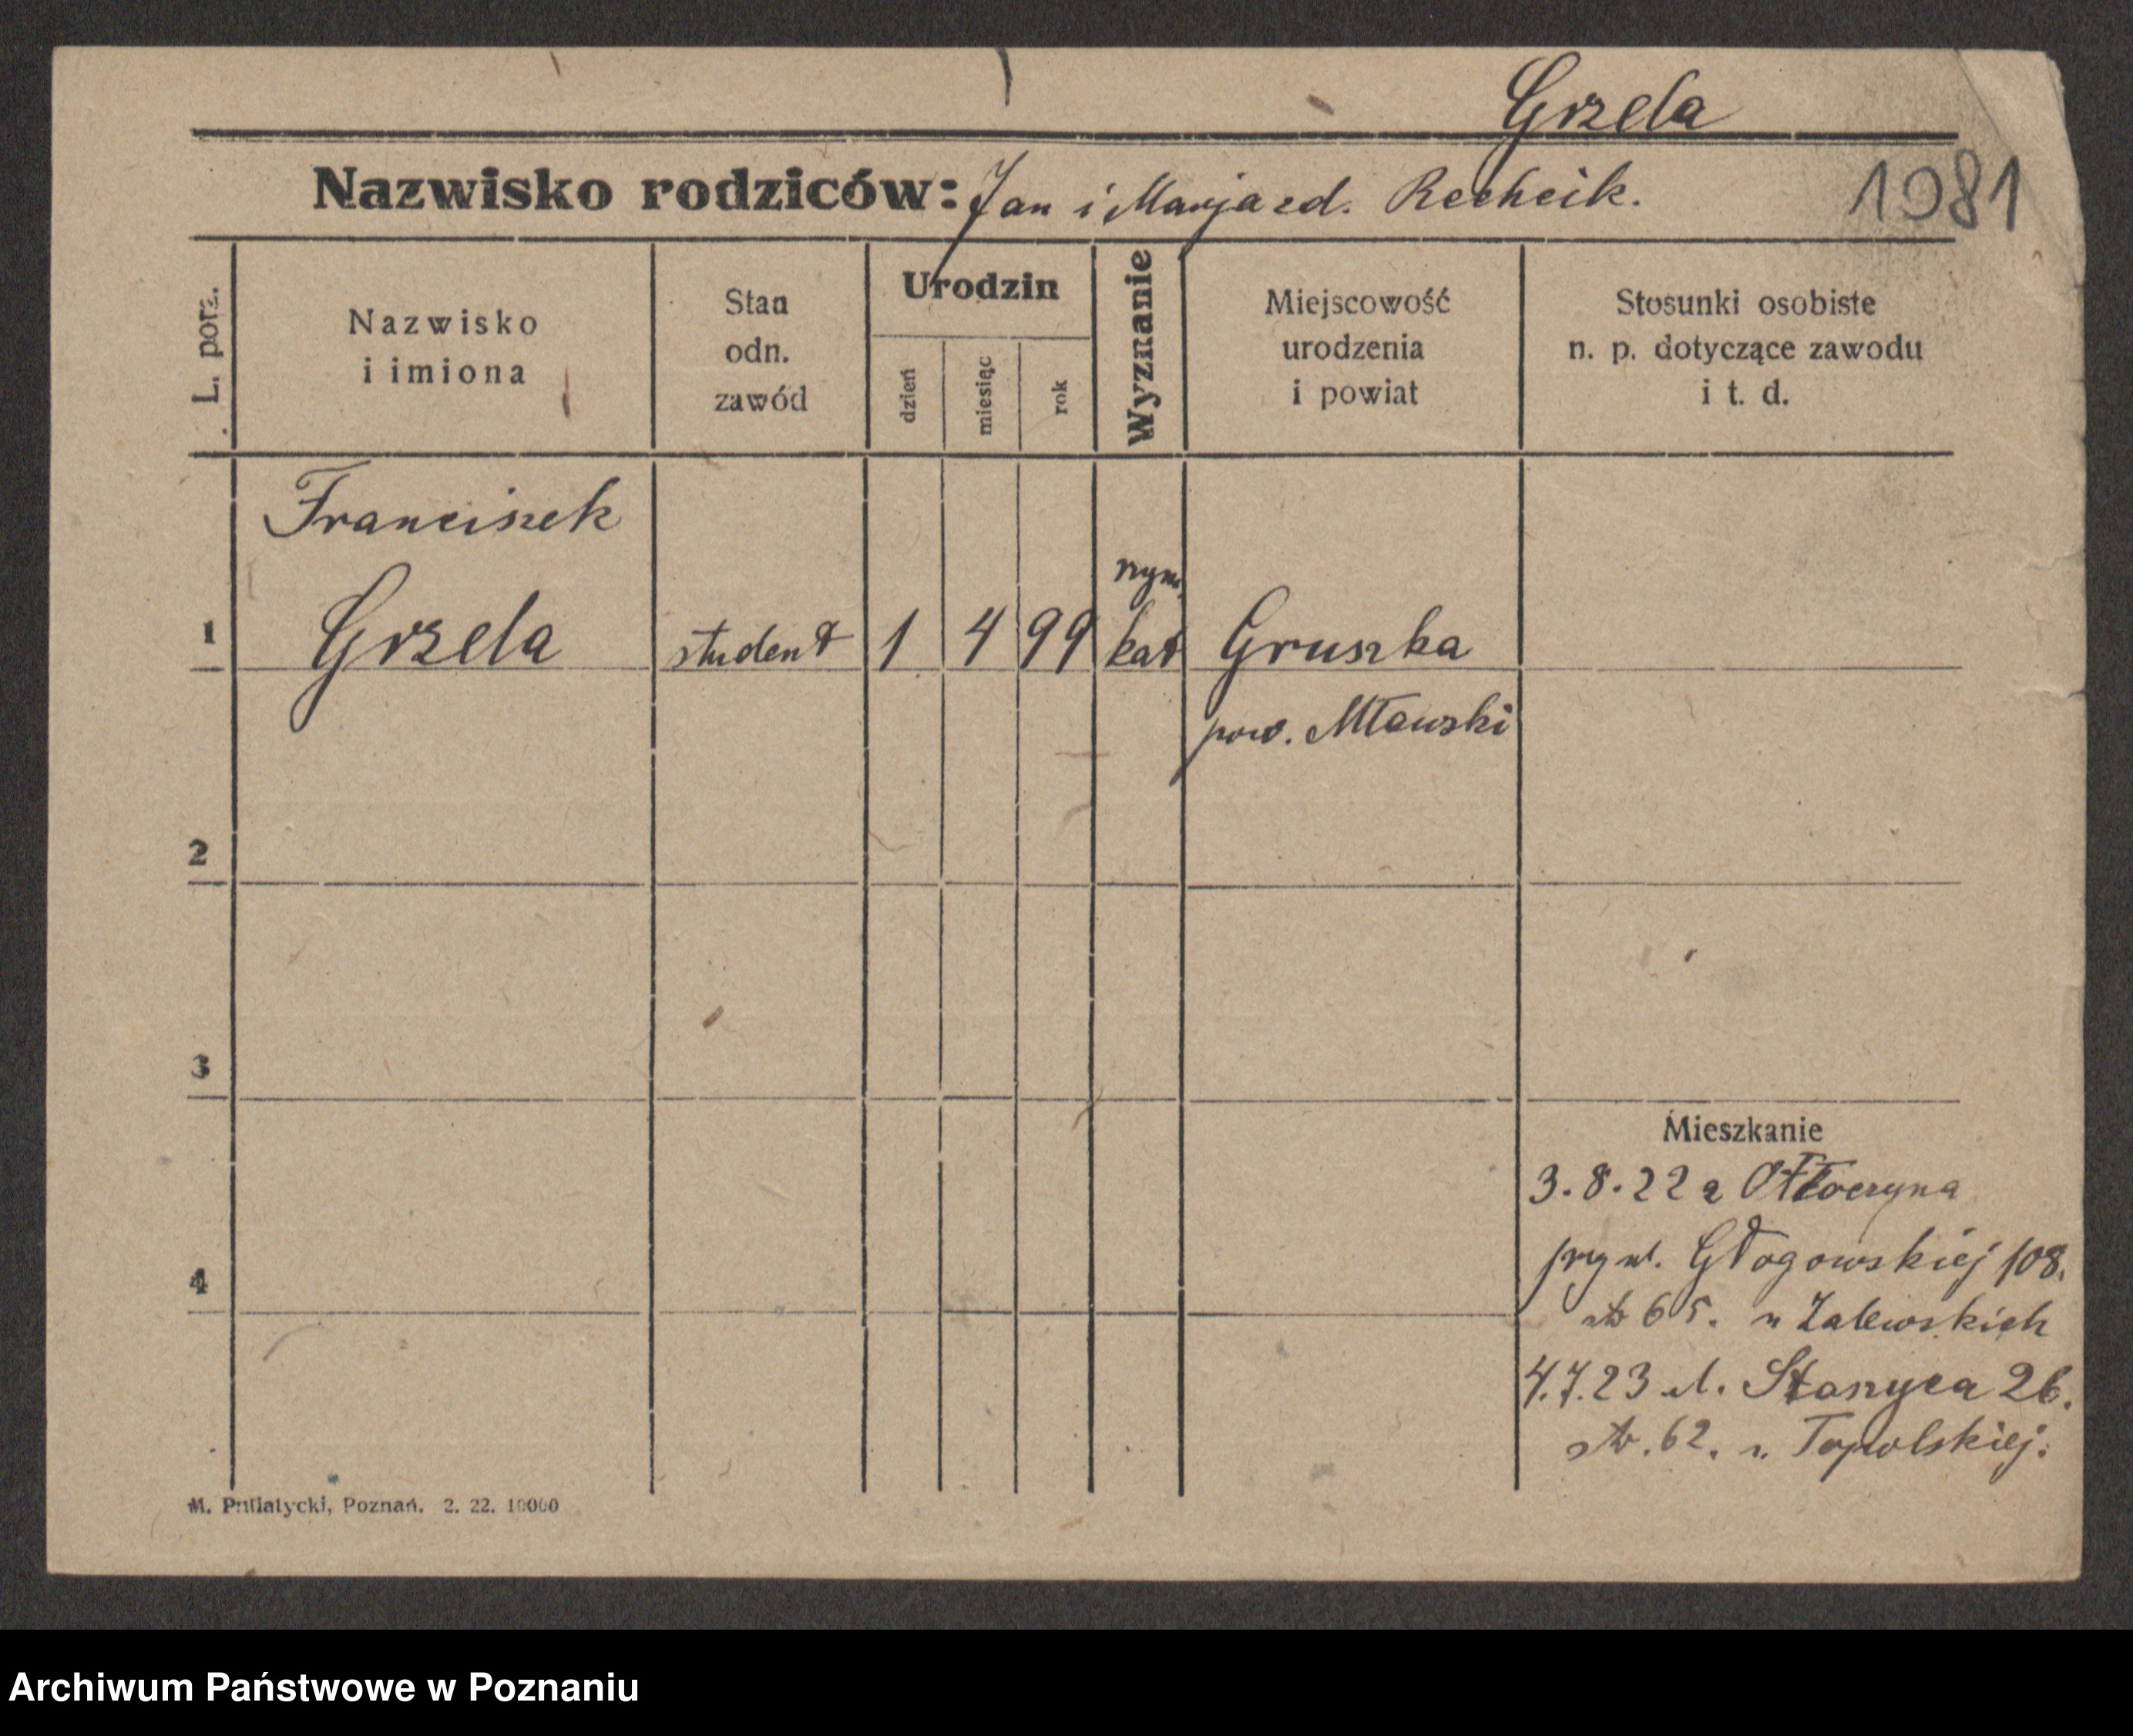 Grzela
Nazwisko rodziców: Jan i Marja zd. Rechcik.
1981
L. porz.
Nazwisko
i imiona
Stan
odn.
zawód
Urodzin
dzień
miesiąc
rok
Wyznanie
Miejscowość
urodzenia
i powiat
Stosunki osobiste
n. p. dotyczące zawodu
i t. d.
Franciszek
rzym.
1 Grzela student 1 4 99 kat Gruszka
pow. Mławski
2
3
Mieszkanie
3.8.22 z Otłoczyna
przy ul. Głogowskiej 108.
4
str 65. u Zalewskich
4.7.23 ul. Staszyca 26.
str. 62. u. Topolskiej.
M. Putiatycki, Poznań. 2. 22. 10000
Archiwum Państwowe w Poznaniu